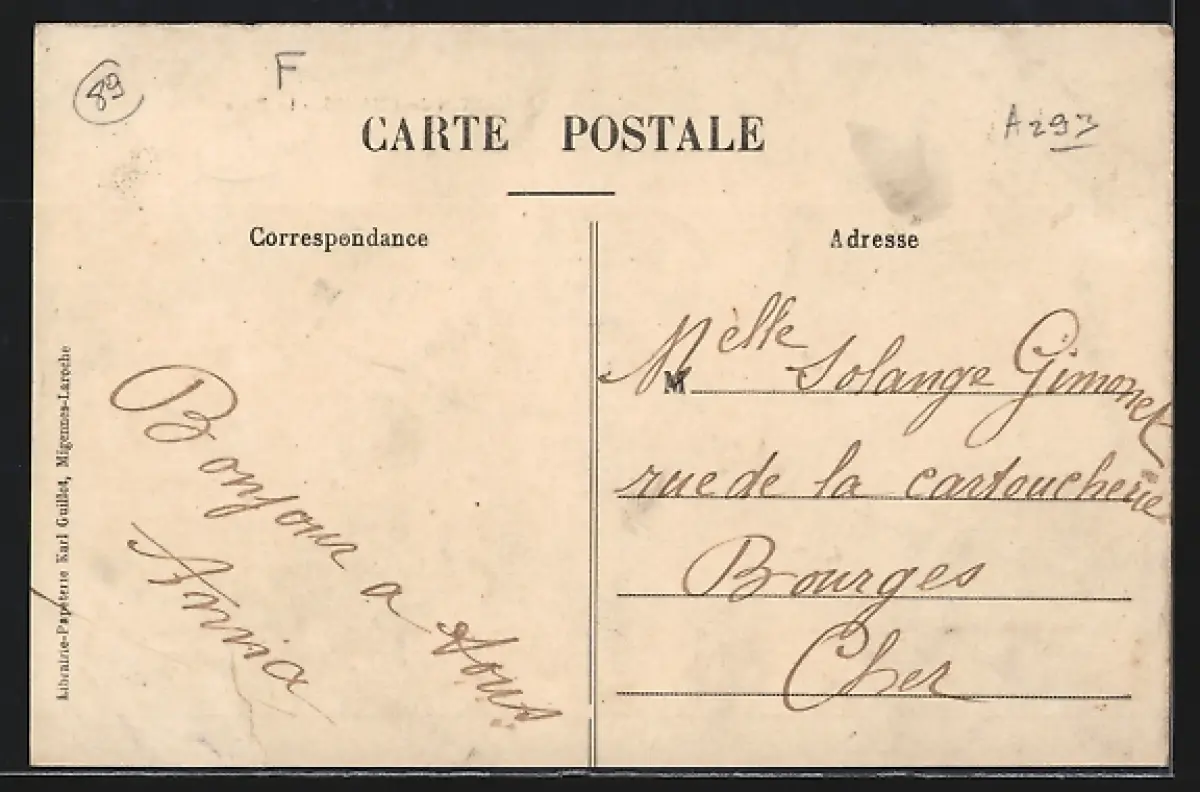 89
F
A293
CARTE POSTALE
Correspondance
Adresse
Librairie-Papeterie Karl Guillot, Migennes-Laroche
Bonjour a tous
Annia
M
Melle Solange Gimonet
rue de la cartoucherie
Bourges
Cher